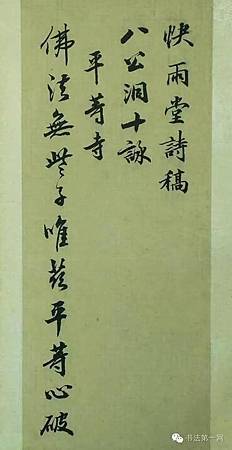 快雨堂詩稿
八公洞十詠
平等寺
佛法無些子唯茲平等心破
书法第一网